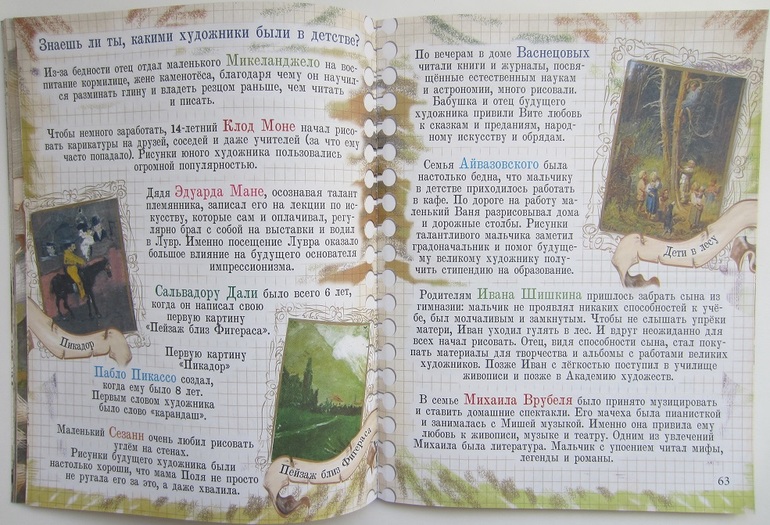 Знаешь ли ты, какими художники были в детстве?
Из-за бедности отец отдал маленького Микеланджело на вос-
питание кормилице, жене каменотёса, благодаря чему он научил-
ся разминать глину и владеть резцом раньше, чем читать
и писать.
Чтобы немного заработать, 14-летний Клод Моне начал рисо-
вать карикатуры на друзей, соседей и даже учителей (за что ему
часто попадало). Рисунки юного художника пользовались
огромной популярностью.
Дядя Эдуарда Мане, осознавая талант
племянника, записал его на лекции по ис-
кусству, которые сам и оплачивал, регу-
лярно брал с собой на выставки и водил
в Лувр. Именно посещение Лувра оказало
большое влияние на будущего основателя
импрессионизма.
Сальвадору Дали было всего 6 лет,
когда он написал свою
первую картину
«Пейзаж близ Фигераса».
Пикадор
Первую картину
«Пикадор»
Пабло Пикассо создал,
когда ему было 8 лет.
Первым словом художника
было слово «карандаш».
Маленький Сезанн очень любил рисовать
углём на стенах.
Рисунки будущего художника были
настолько хороши, что мама Поля не просто
не ругала его за это, а даже хвалила.
Пейзаж близ Фигераса
По вечерам в доме Васнецовых
читали книги и журналы, посвя-
щённые естественным наукам
и астрономии, много рисовали.
Бабушка и отец будущего
художника привили Вите любовь
к сказкам и преданиям, народ-
ному искусству и обрядам.
Семья Айвазовского была
настолько бедна, что мальчику
в детстве приходилось работать
в кафе. По дороге на работу ма-
ленький Ваня разрисовывал дома
и дорожные столбы. Рисунки
талантливого мальчика заметил
градоначальник и помог будуще-
му великому художнику полу-
чить стипендию на образование.
Дети в лесу
Родителям Ивана Шишкина пришлось забрать сына из
гимназии: мальчик не проявлял никаких способностей к учё-
бе, был молчаливым и замкнутым. Чтобы не слышать упрёки
матери, Иван уходил гулять в лес. И вдруг неожиданно для
всех начал рисовать. Отец, видя способности сына, стал поку-
пать материалы для творчества и альбомы с работами великих
художников. Позже Иван с лёгкостью поступил в училище
живописи и позже в Академию художеств.
В семье Михаила Врубеля было принято музицировать
и ставить домашние спектакли. Его мачеха была пианисткой
и занималась с Мишей музыкой. Именно она привила ему
любовь к живописи, музыке и театру. Одним из увлечений
Михаила была литература. Мальчик с упоением читал мифы,
легенды и романы.
63